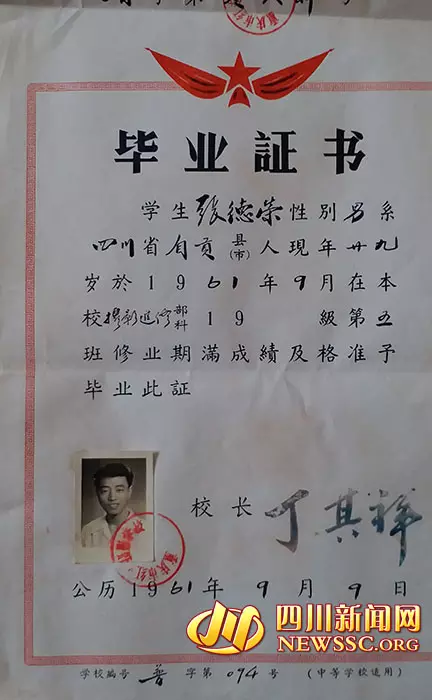 毕业証书
学生張德荣性別男系
四川省自贡县(市)人現年廿九
岁於1961年9月在本
校摄影進修部科19 級第五
班修业期滿成績及格准予
毕业此証
校长丁其祥
公历1961年9月9日
四川新闻网
NEWSSC.ORG
学校編号普字第094号(中等学校适用)